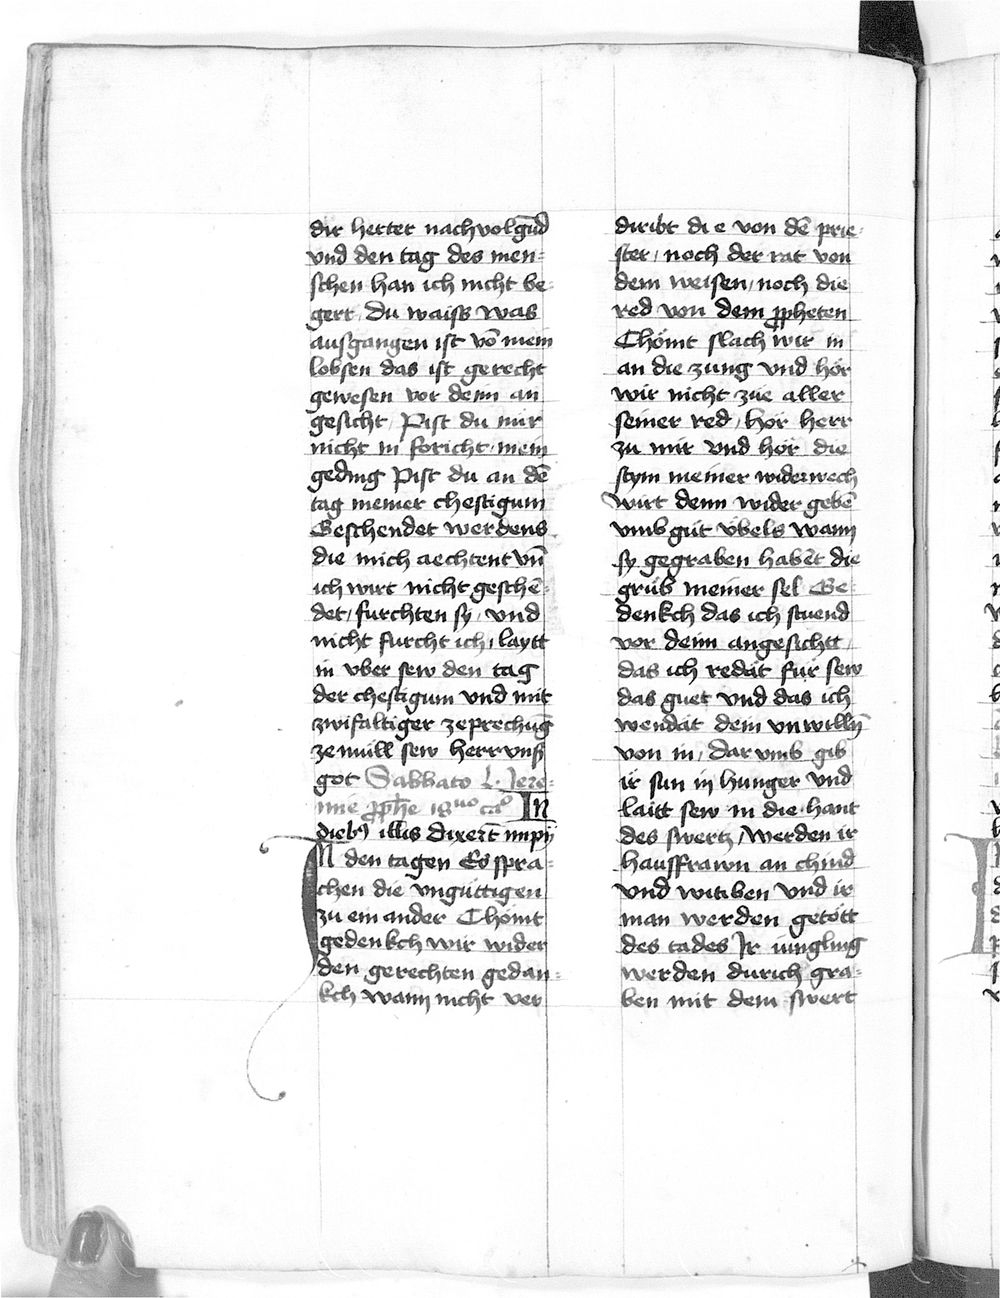 dir herter nachvolgūd
vnd den tag des men=
schen han ich nicht be=
gert / du waiss was
ausgangen ist vō mein
lobsen das ist gerecht
gewesen vor deim an
gesicht / Pist du mir
nicht in foricht / mein
geding Pist du an dē
tag meiner chestigum
Geschendet werdens
die mich aechtent vn̄
ich wirt nicht geschē=
det / furchten sy / vnd
nicht furcht ich / laytt
in vber sew den tag
der chestigum vnd mit
zwifaltiger zeprechūg
ze müll sew herr vnsß
got Sabbato L. Jere=
mie ꝓphe 18uo cao IN
diebꝰ illis dixert̄ impij
IN den tagen Es spra=
chen die vngüttigen
zu ein ander Chömt
gedenkch wir wider
den gerechten gedan=
kch wann nicht ver
diribt die von dē prie=
ster / noch der rat von
dem weisen / noch die
red von dem ꝓpheten
Chömt slach wir in
an die zung vnd hör
wir nicht züe aller
seiner red / hör herr
zu mir vnd hör die
stym meiner widerwech
wirt denn wider gebē
vmb güt vbels wann
sy gegraben habēt die
grüb meiner sel Ge=
denkch das ich stuend
vor deim angesichtt /
das ich redät für sew
das guet vnd das ich
wendät dein vnwillñ
von in / dar vmb gib
ir sun in hunger vnd
laitt sew in die hant
des swertz / werden ir
hausffrawn an chind
vnd witiben vnd ir
man werden getött
des tades Ir iungling
werden durich gra=
ben mit dem swert